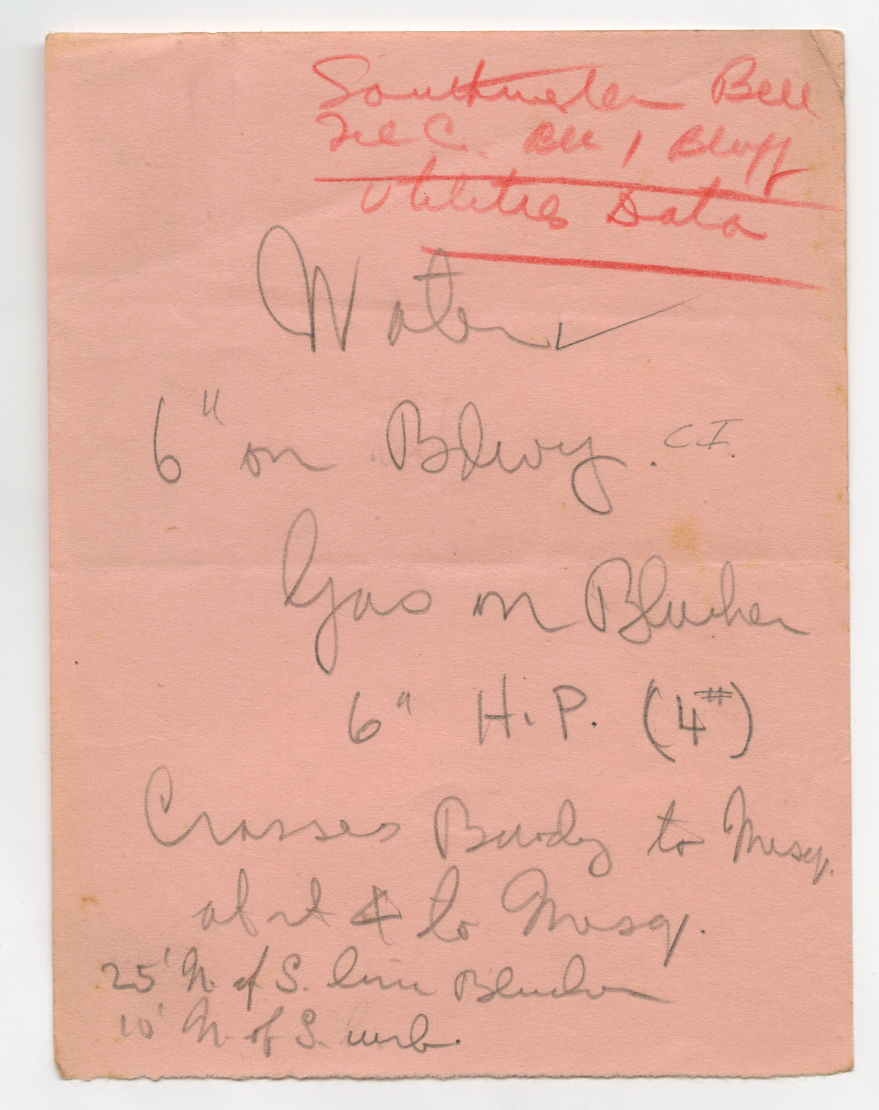 Southwestern Bell
Tel C. Blk 1 Bluff
Utilities Data
Water ✓
6" on Bdwy. C.I.
Gas on Blucher
6" H.P. (4#)
Crosses Bwdy to Mesq.
at rt to Mesq.
25' N of S. line Blucher
10' N. of S. curb.